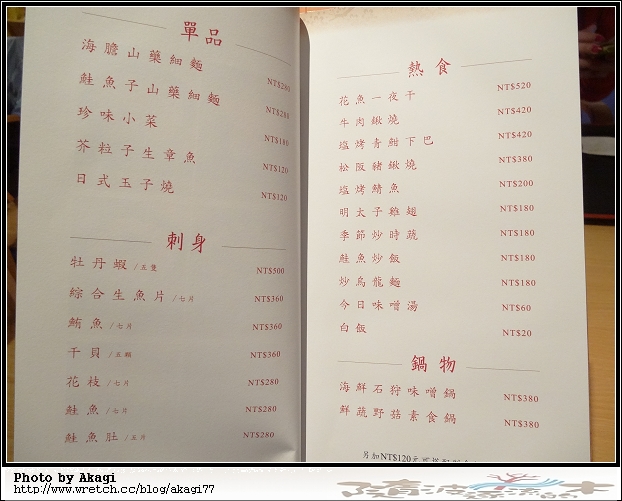 單品
海膽山藥細麵 NT$280
鮭魚子山藥細麵 NT$280
珍味小菜 NT$180
芥粒子生章魚 NT$120
日式玉子燒 NT$120
刺身
牡丹蝦/五隻 NT$500
綜合生魚片/七片 NT$360
鮪魚/七片 NT$360
干貝/五顆 NT$360
花枝/七片 NT$280
鮭魚/七片 NT$280
鮭魚肚/五片 NT$280
熱食
花魚一夜干 NT$520
牛肉鍬燒 NT$420
塩烤青魽下巴 NT$420
松阪豬鍬燒 NT$380
塩烤鯖魚 NT$200
明太子雞翅 NT$180
季節炒時蔬 NT$180
鮭魚炒飯 NT$180
炒烏龍麵 NT$180
今日味噌湯 NT$60
白飯 NT$20
鍋物
海鮮石狩味噌鍋 NT$380
鮮蔬野菇素食鍋 NT$380
另加NT$120元可搭配
Photo by Akagi
http://www.wretch.cc/blog/akagi77